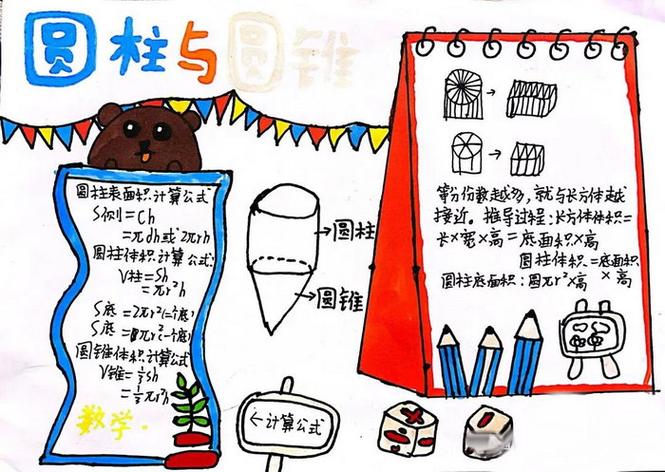 圆柱与圆锥
圆柱表面积计算公式
S侧=Ch
=πdh或2πrh
圆柱体积计算公式
V柱=Sh
=πr²h
S底=2πr²(二个底)
S底=πr²(一个底)
圆锥体积计算公式
V锥=⅓Sh
=⅓πr²h
数学.
圆柱
圆锥
←计算公式
等分份数越多,就与长方体越
接近。推导过程:长方体体积=
长×宽×高=底面积×高
圆柱体积=底面积
×高
圆柱底面积:圆πr²×高